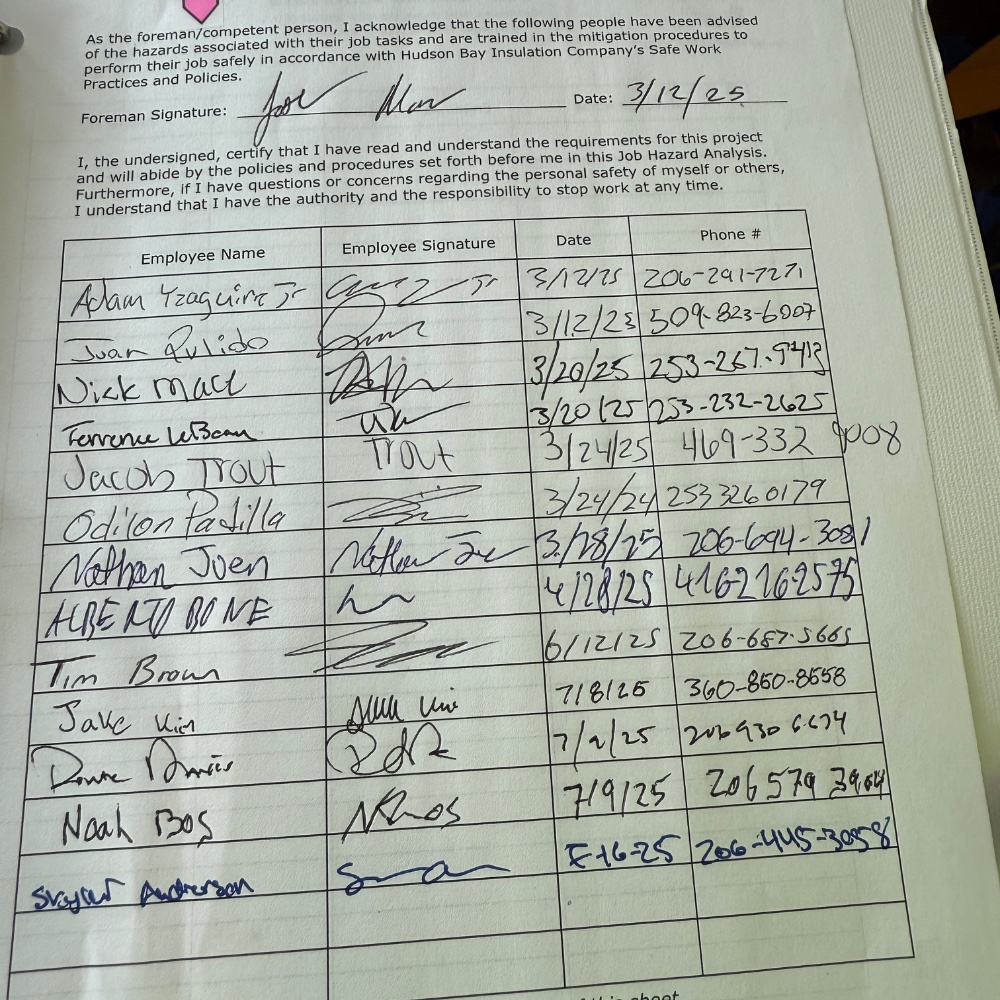 As the foreman/competent person, I acknowledge that the following people have been advised
of the hazards associated with their job tasks and are trained in the mitigation procedures to
perform their job safely in accordance with Hudson Bay Insulation Company's Safe Work
Practices and Policies.
Foreman Signature: Date: 3/12/25
I, the undersigned, certify that I have read and understand the requirements for this project
and will abide by the policies and procedures set forth before me in this Job Hazard Analysis.
Furthermore, if I have questions or concerns regarding the personal safety of myself or others,
I understand that I have the authority and the responsibility to stop work at any time.
Employee Name Employee Signature Date Phone #
Adam Yzaguirre Jr Jr 3/12/25 206-291-7271
Juan Pulido 3/12/25 509-823-6007
Nick 3/20/25
Terrence LeBeau 3/20/25 253-232-2625
Jacob Trout Trout 3/24/25 469-332 9008
Odilon Padilla 3/24/24 2533260179
Nathan Juen Nathan 3/28/25 206-694-3081
ALBERTO BONE 4/28/25
Tim Brown 6/12/25 206-687-5665
Jake 7/8/25 360-850-8558
7/9/25
Noah Bos NBos 7/9/25 206 579
Anderson 206-445-3058